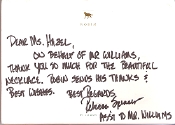 DEAR MS. HAZEL,
ON BEHALF OF MR WILLIAMS,
THANK YOU SO MUCH FOR THE BEAUTIFUL
NECKLACE. ROBIN SENDS HIS THANKS &
BEST WISHES. BEST REGARDS,
Rebecca Spencer
ASST TO MR. WILLIAMS